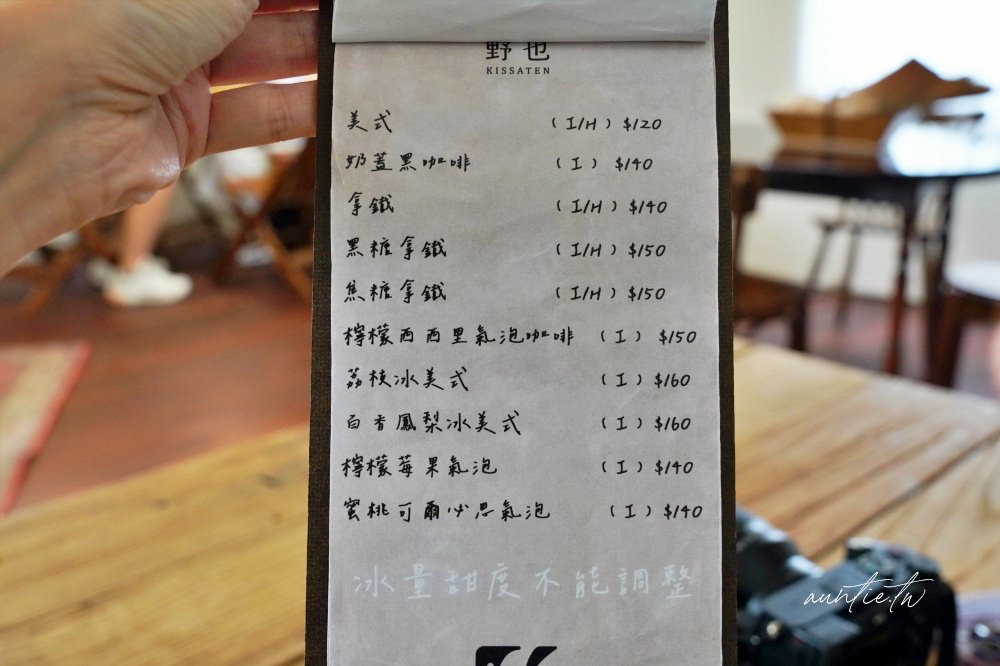 野也
KISSATEN
美式 (I/H) $120
奶蓋黑咖啡 (I) $140
拿鐵 (I/H) $140
黑糖拿鐵 (I/H) $150
焦糖拿鐵 (I/H) $150
檸檬西西里氣泡咖啡 (I) $150
荔枝冰美式 (I) $160
百香鳳梨冰美式 (I) $160
檸檬莓果氣泡 (I) $140
蜜桃可爾必思氣泡 (I) $140
冰量甜度不能調整
auntie.tw